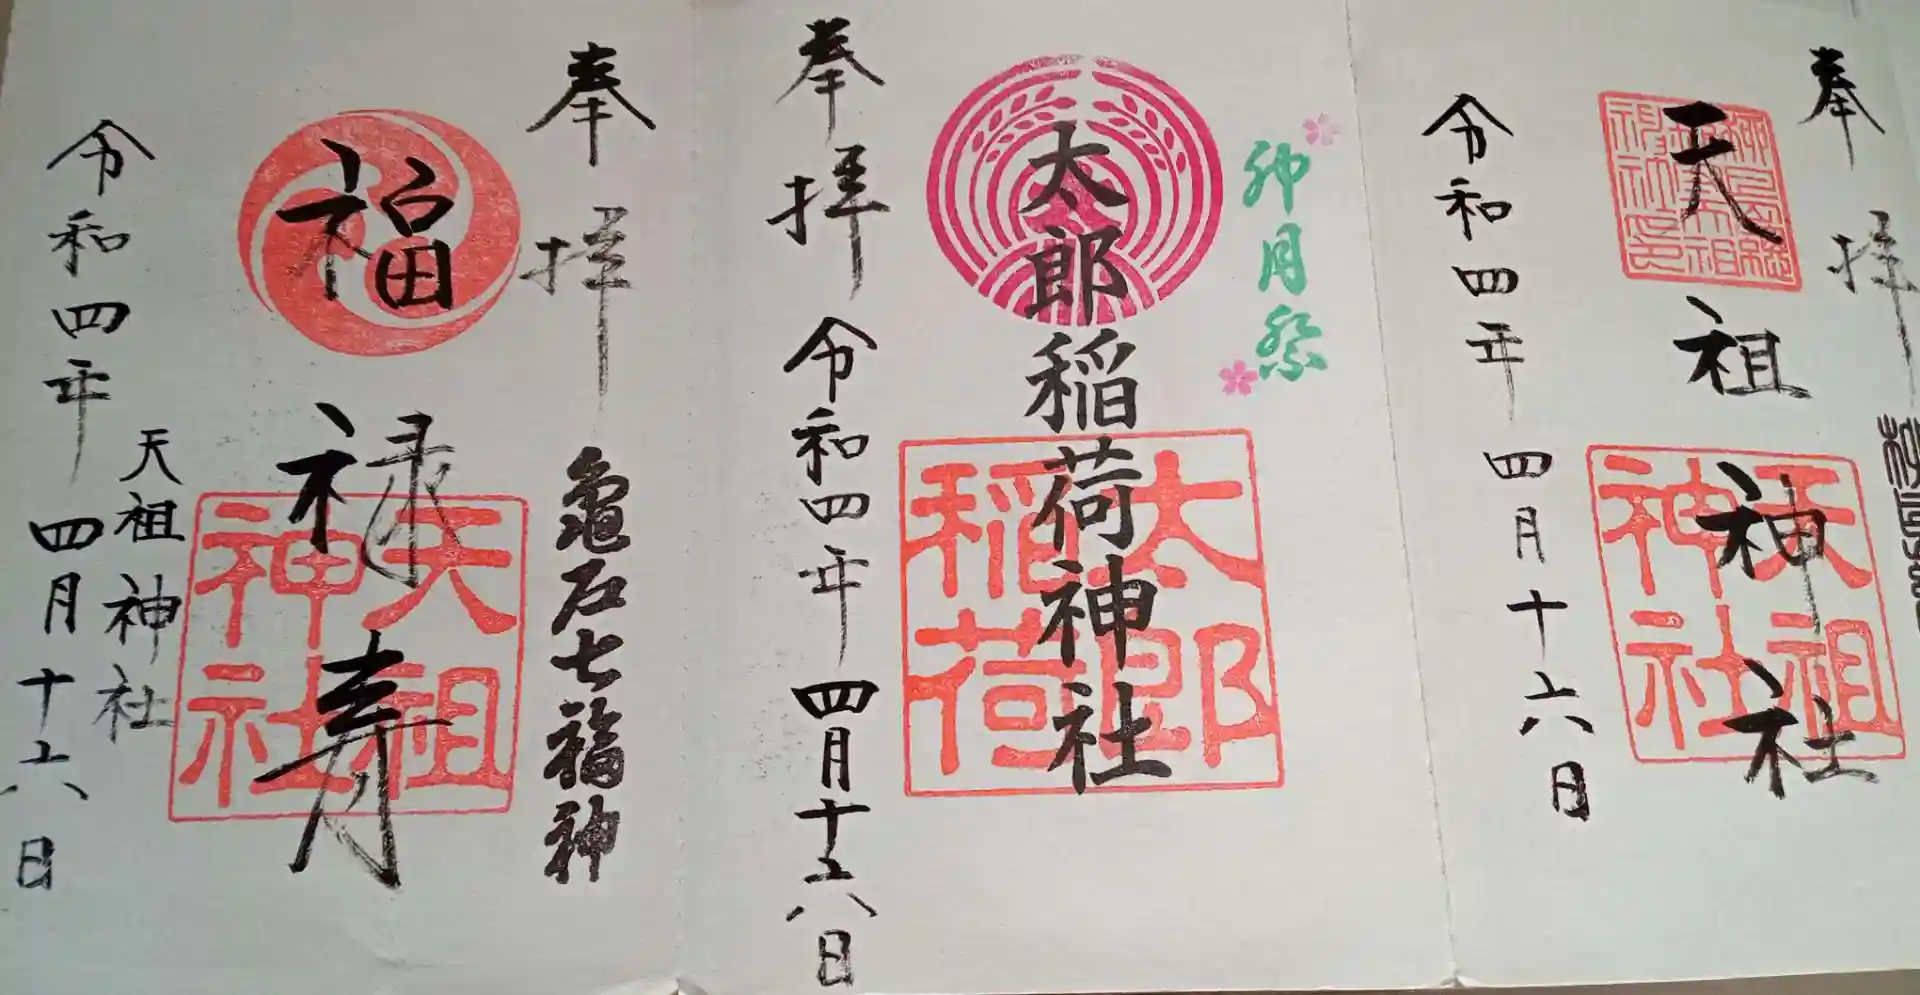 奉拝
天祖神社
天祖神社
令和四年四月十六日
卯月祭
太郎稲荷神社
太郎稲荷
奉拝
令和四年四月十六日
奉拝
亀戸七福神
福禄寿
天祖神社
天祖神社
令和四年四月十六日